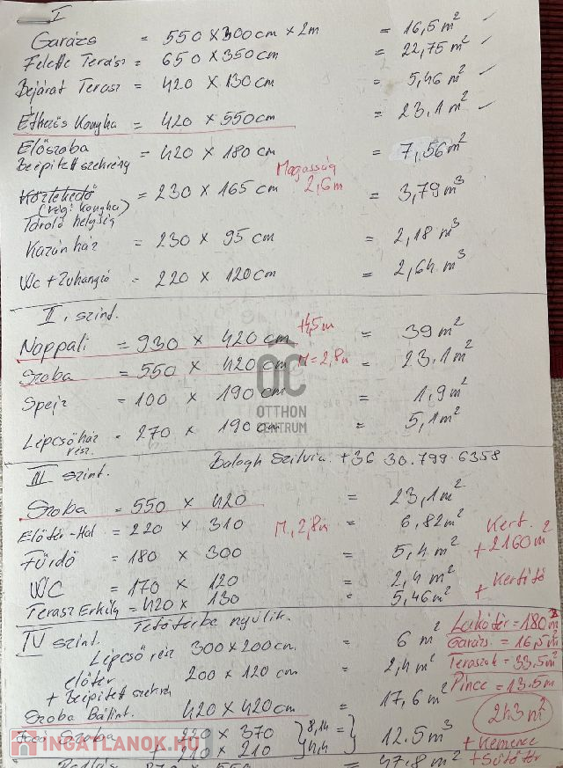 I
Garázs = 550 x 300 cm x 2m = 16,5 m²
Felette Terász = 650 x 350 cm = 22,75 m²
Bejárat Terasz = 420 x 130 cm = 5,46 m²
Étkezős Konyha = 420 x 550 cm = 23,1 m²
Előszoba
Beépített szekrény = 420 x 180 cm = 7,56 m²
Magasság
2,6 m
Közlekedő = 230 x 165 cm = 3,79 m³
(régi konyha)
Tároló helység
Kazán ház = 230 x 95 cm = 2,18 m³
Wc + Zuhanyzó = 220 x 120 cm = 2,64 m³
II, szint.
Nappali = 930 x 420 cm = 39 m²
Szoba = 550 x 420 cm M=2,8m = 23,1 m²
Spejz = 100 x 190 cm = 1,9 m²
OTTHON
CENTRUM
Lépcsőház = 270 x 190 cm = 5,1 m²
rész.
III szint. Balogh Szilvia. +36 30.799.6358
Szoba = 550 x 420 = 23,1 m²
Előtér-Hal = 220 x 310 M, 2,8m = 6,82 m²
Kert.
+2160 m²
Fürdő = 180 x 300 = 5,4 m²
WC = 170 x 120 = 2,4 m²
Terasz Erkély = 420 x 130 = 5,46 m²
+ Kertitó
IV szint. Tetőtérbe nyúlik.
Lépcső rész 300 x 200 cm. = 6 m²
előtér 200 x 120 cm = 2,4 m²
+ Beépített szekrény
Lakótér = 180 m²
Garázs. = 16,5 m²
Teraszok = 33,5 m²
Pince = 13.5 m
243 m²
Szoba Bálint. 420 x 420 cm = 17,6 m²
Szoba 220 x 370 } 8,14 = 12.5 m³
210 x 210 } 4,4
+ Kemence
INGATLANOK.HU
= 47,8 m²